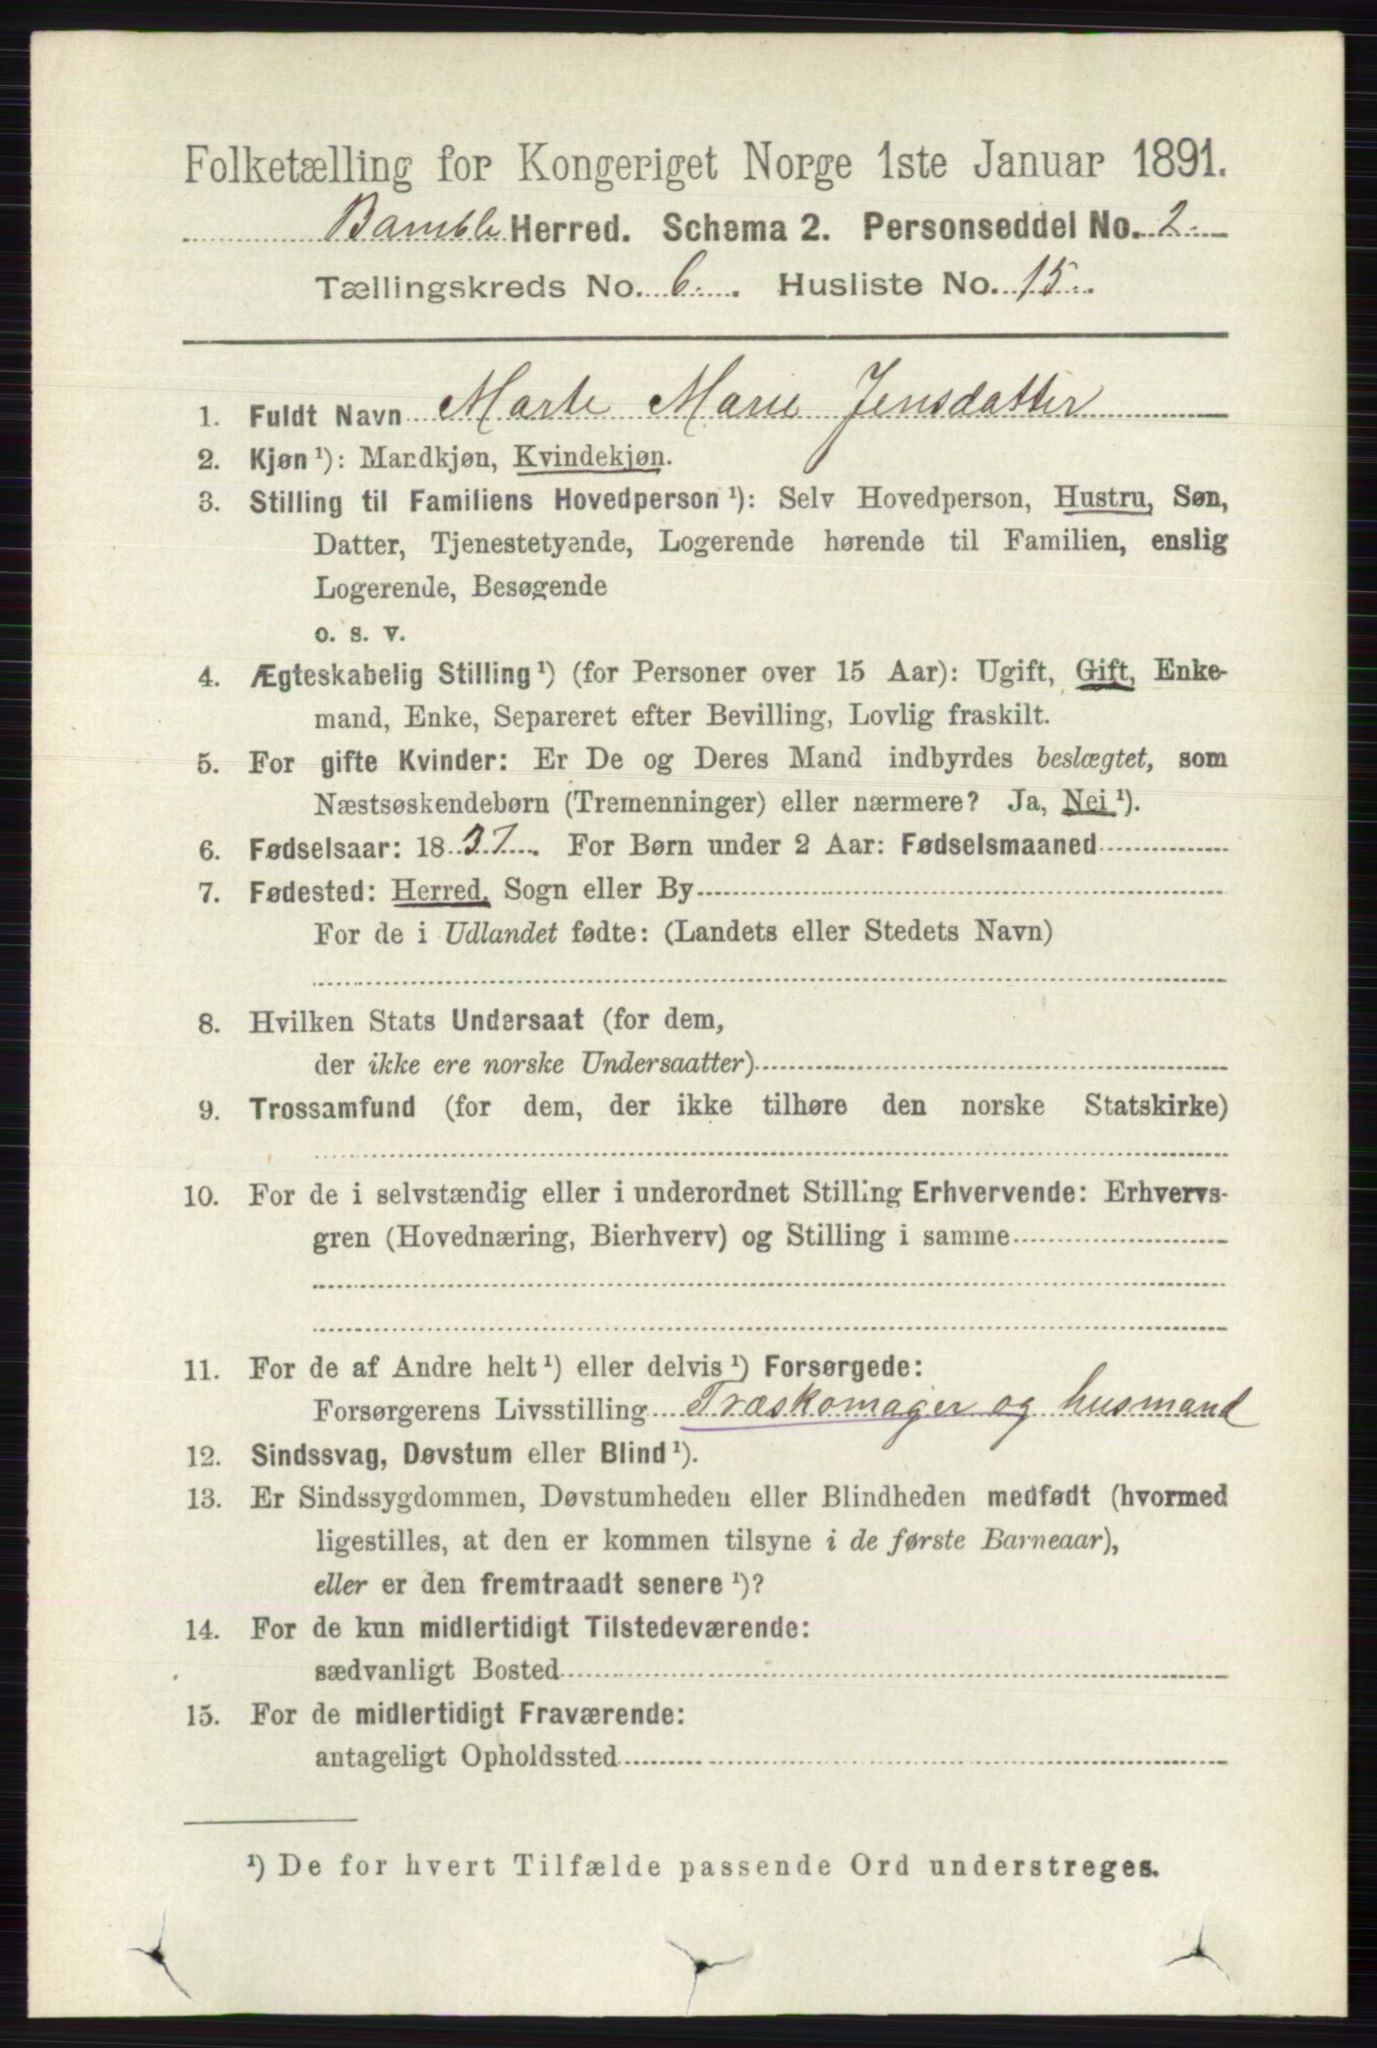 Folketælling for Kongeriget Norge 1ste Januar 1891.
Bamble Herred. Schema 2. Personseddel No. 2.
Tællingskreds No. 6. Husliste No. 15.
1. Fuldt Navn Marte Marie Jensdatter
2. Kjøn ¹): Mandkjøn, Kvindekjøn.
3. Stilling til Familiens Hovedperson ¹): Selv Hovedperson, Hustru, Søn,
Datter, Tjenestetyende, Logerende hørende til Familien, enslig
Logerende, Besøgende
o. s. v.
4. Ægteskabelig Stilling ¹) (for Personer over 15 Aar): Ugift, Gift, Enke-
mand, Enke, Separeret efter Bevilling, Lovlig fraskilt.
5. For gifte Kvinder: Er De og Deres Mand indbyrdes beslægtet, som
Næstsøskendebørn (Tremenninger) eller nærmere? Ja, Nei ¹).
6. Fødselsaar: 1837. For Børn under 2 Aar: Fødselsmaaned
7. Fødested: Herred, Sogn eller By
For de i Udlandet fødte: (Landets eller Stedets Navn)
8. Hvilken Stats Undersaat (for dem,
der ikke ere norske Undersaatter)
9. Trossamfund (for dem, der ikke tilhøre den norske Statskirke)
10. For de i selvstændig eller i underordnet Stilling Erhvervende: Erhvervs-
gren (Hovednæring, Bierhverv) og Stilling i samme
11. For de af Andre helt ¹) eller delvis ¹) Forsørgede:
Forsørgerens Livsstilling Træskomager og husmand
12. Sindssvag, Døvstum eller Blind ¹).
13. Er Sindssygdommen, Døvstumheden eller Blindheden medfødt (hvormed
ligestilles, at den er kommen tilsyne i de første Barneaar),
eller er den fremtraadt senere ¹)?
14. For de kun midlertidigt Tilstedeværende:
sædvanligt Bosted
15. For de midlertidigt Fraværende:
antageligt Opholdssted
¹) De for hvert Tilfælde passende Ord understreges.